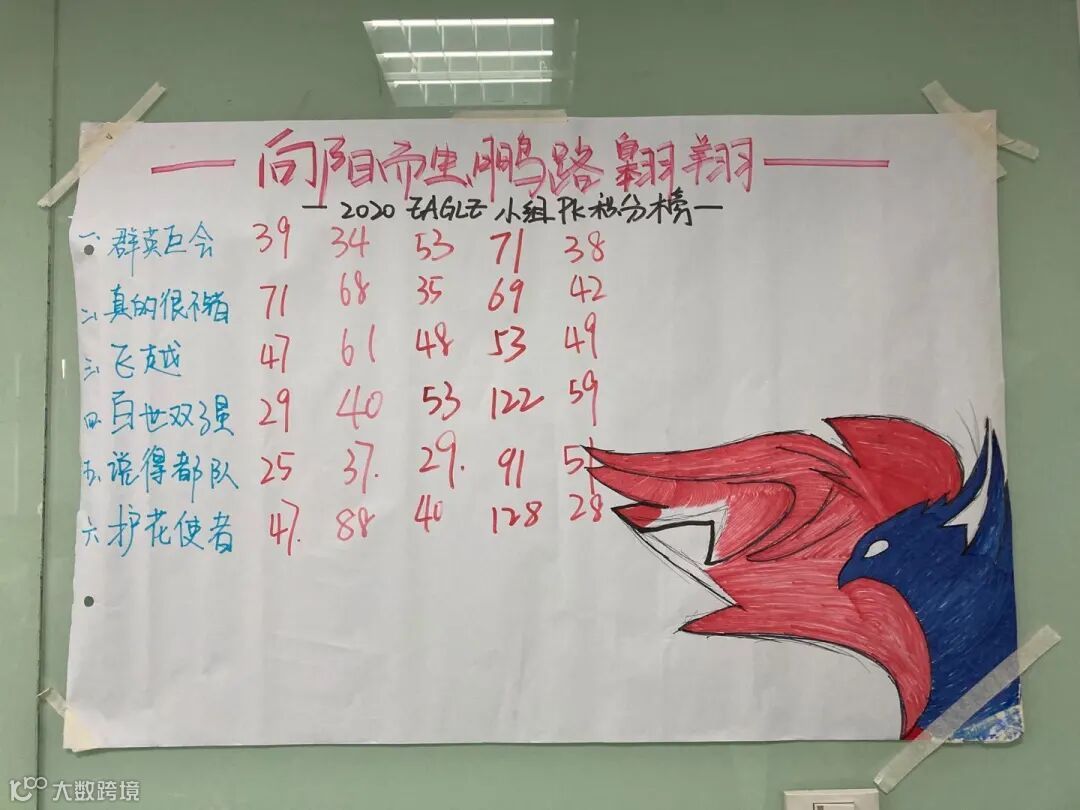 向阳而生 鹏路翱翔
2020 EAGLE 小组PK积分榜
一 群英巨会 39 34 53 71 38
二 真的很不错 71 68 35 69 42
三 飞越 47 61 48 53 49
四 百世双强 29 40 53 122 59
五 说得都队 25 37. 29. 91
六 护花使者 47. 88 40 128 28
大数跨境